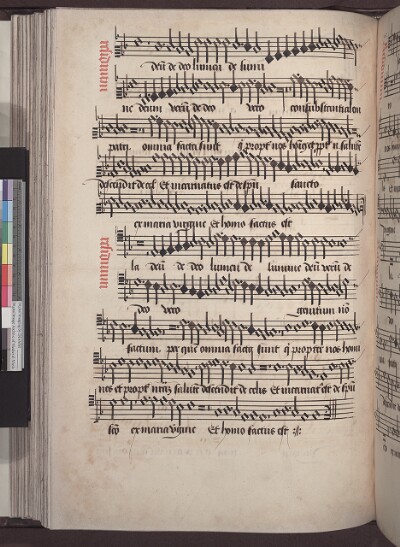 deū de deo lumen de lumi
ne deum verū de deo vero consubstantialem
patri omnia facta sunt q̄ propt nos hoīes et ppt n salutē
descendit de cel Et incarnatus est de spū sancto
ex maria virgine Et homo factus est
la deū de deo lumen de lumine deū verū de
deo vero genitum nō
factum per quē omnia facta sunt q̄ propter nos homi
nes et propt nrām salutē descendit de celis Et incarnat est de spū
scō ex maria virgine Et homo factus est